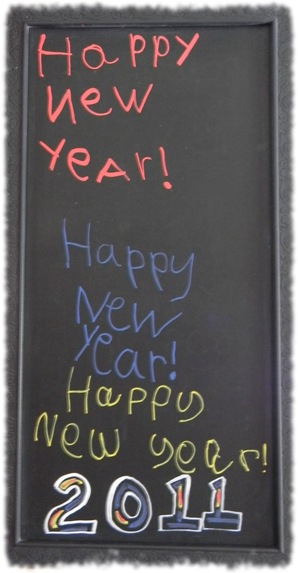 Happy
New
YeAr!
Happy
New
year!
Happy
New year!
2011